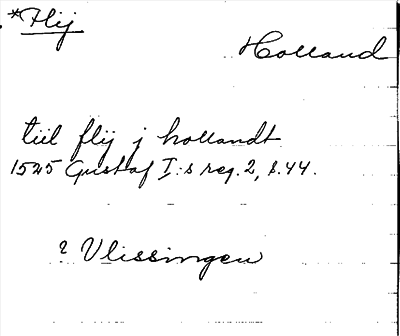 *Flij
Holland
tiil flij j hollandt
1525 Gustaf I:s reg. 2, s. 44.
? Vlissingen